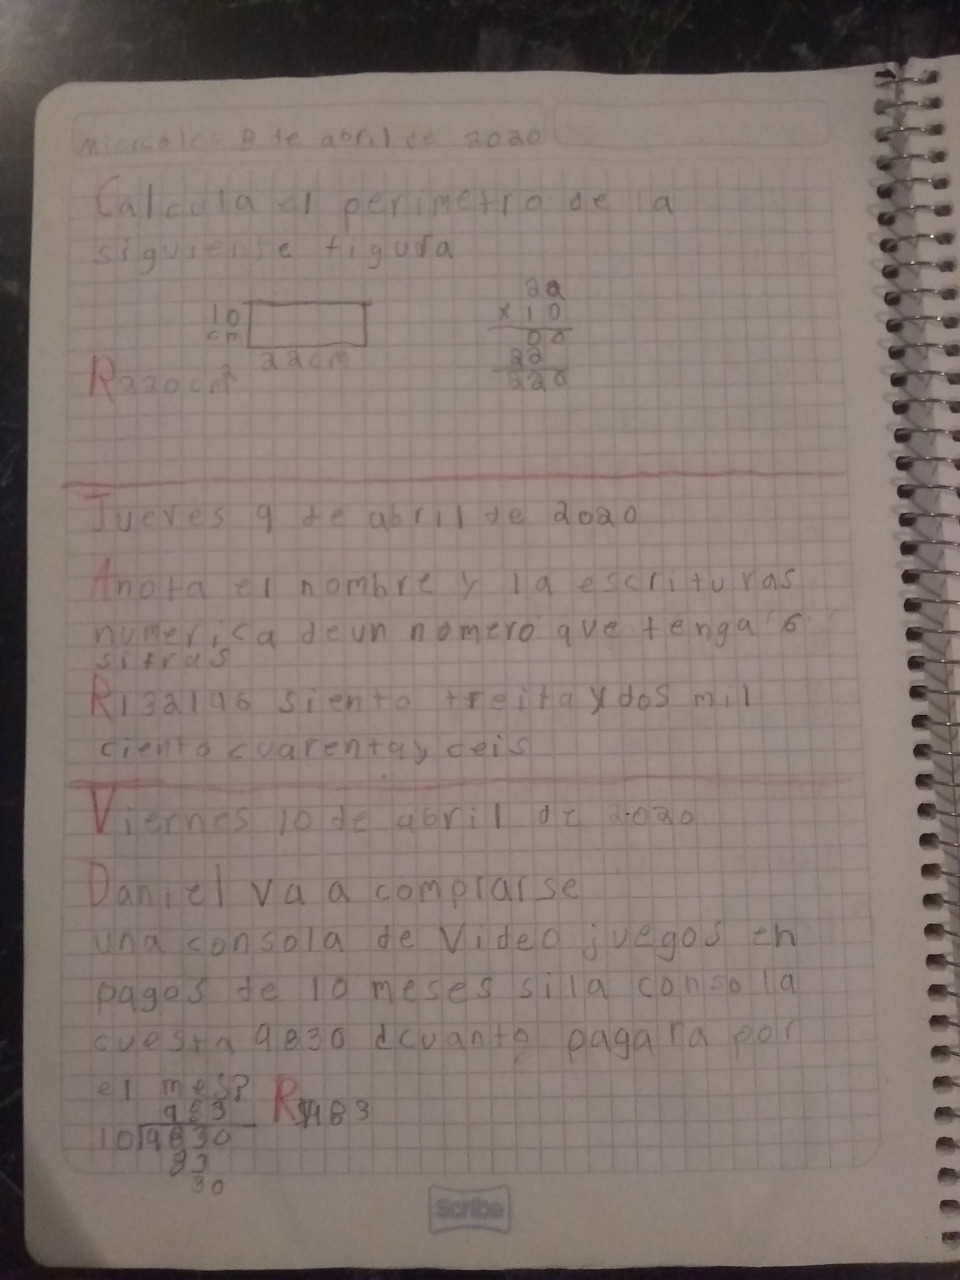 Miercoles 8 de abril de 2020
Calcula el perimetro de la
siguiente figura
10
cm
22cm
22
x 10
00
22
220
R220cm²
Jueves 9 de abril de 2020
Anota el nombre y la escrituras
numerica de un nomero que tenga 6
sifras
R132146 siento treitaydos mil
ciento cuarentay ceis
Viernes 10 de abril de 2020
Daniel va a comprarse
una consola de Video juegos en
pagos de 10 meses si la consola
cuesta 9830 ¿cuanto pagara por
el mes?
R$983
983
10 9830
83
30
Scribe